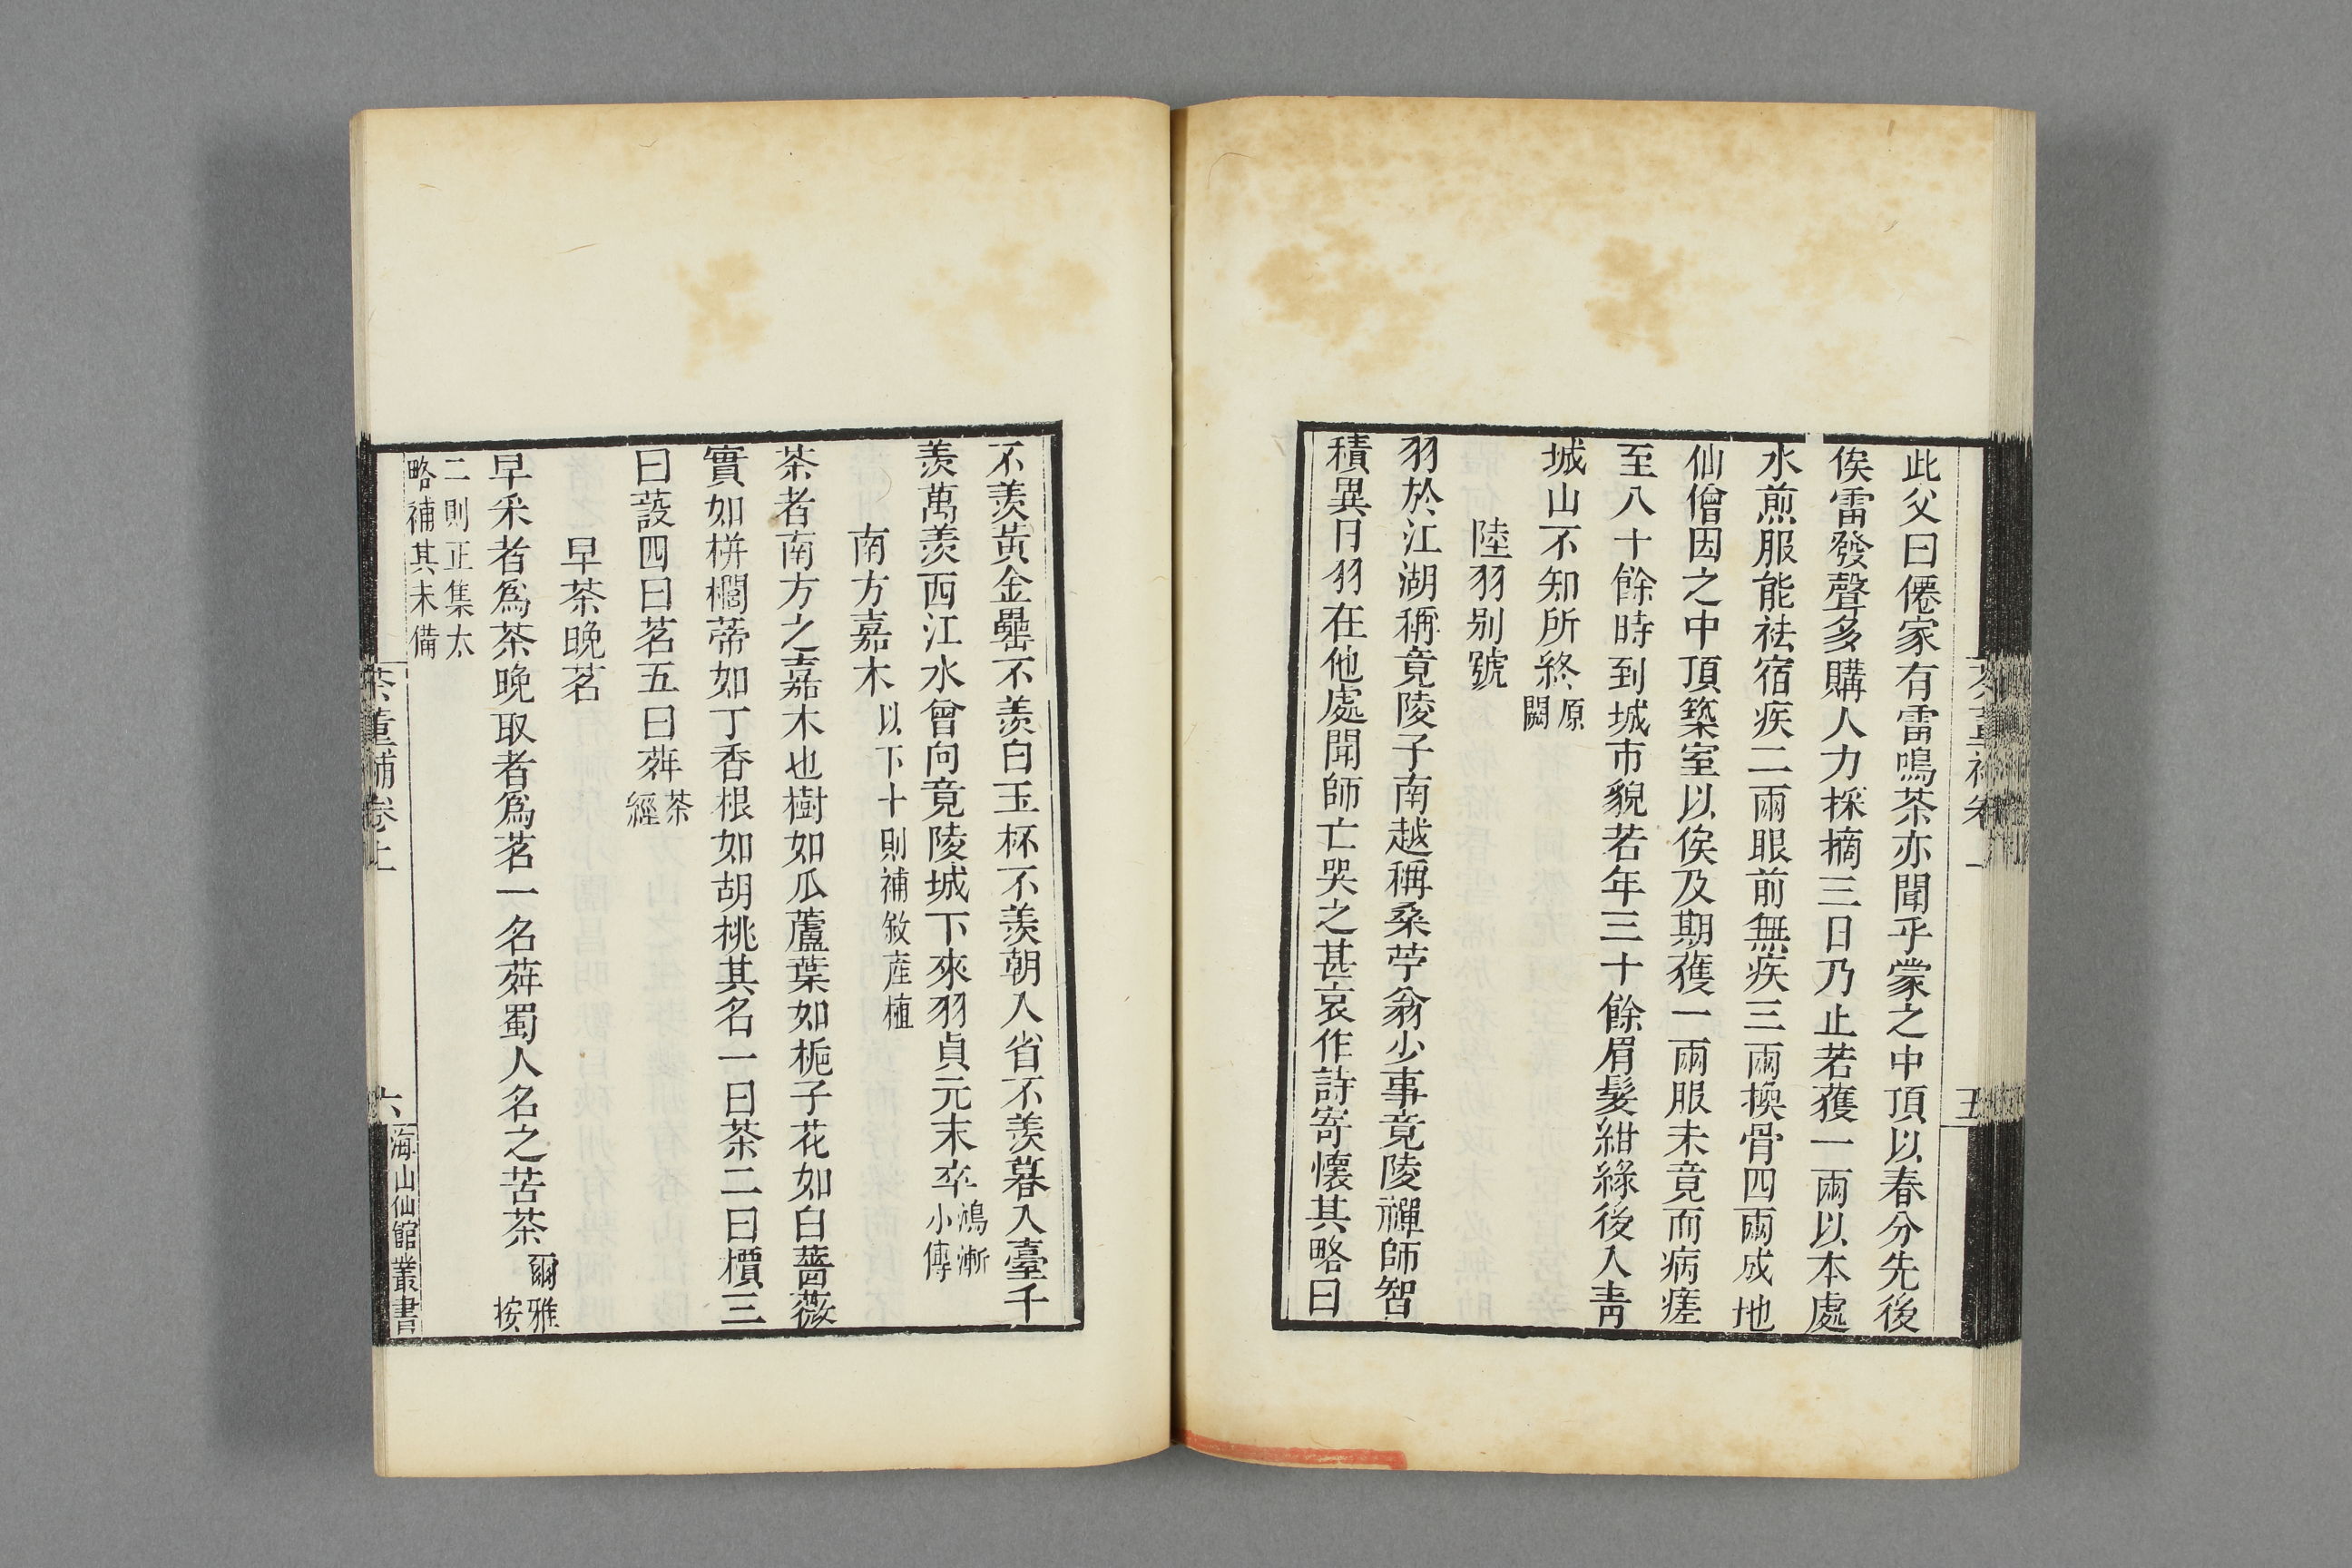 此父曰僊家有雷鳴茶亦聞乎蒙之中頂以春分先後
俟雷發聲多購人力採摘三日乃止若獲一兩以本處
水煎服能祛宿疾二兩眼前無疾三兩換骨四兩成地
仙僧因之中頂築室以俟及期獲一兩服未竟而病瘥
至八十餘時到城市貌若年三十餘眉髮紺綠後入靑
城山不知所終原闕
陸羽别號
羽於江湖稱竟陵子南越稱桑苧翁少事竟陵禪師智
積異日羽在他處聞師亡哭之甚哀作詩寄懷其略曰
五
不羨黃金罍不羨白玉杯不羨朝入省不羨暮入臺千
羨萬羨西江水曾向竟陵城下來羽貞元末卒鴻漸小傳
南方嘉木以下十則補敘産植
茶者南方之嘉木也樹如瓜蘆葉如梔子花如白薔薇
實如栟櫚蒂如丁香根如胡桃其名一曰茶二曰檟三
曰蔎四曰茗五曰荈茶經
早茶晚茗
早采者爲茶晚取者爲茗一名荈蜀人名之苦茶爾雅按
二則正集太
略補其未備
茶董補卷上
六
海山仙館叢書